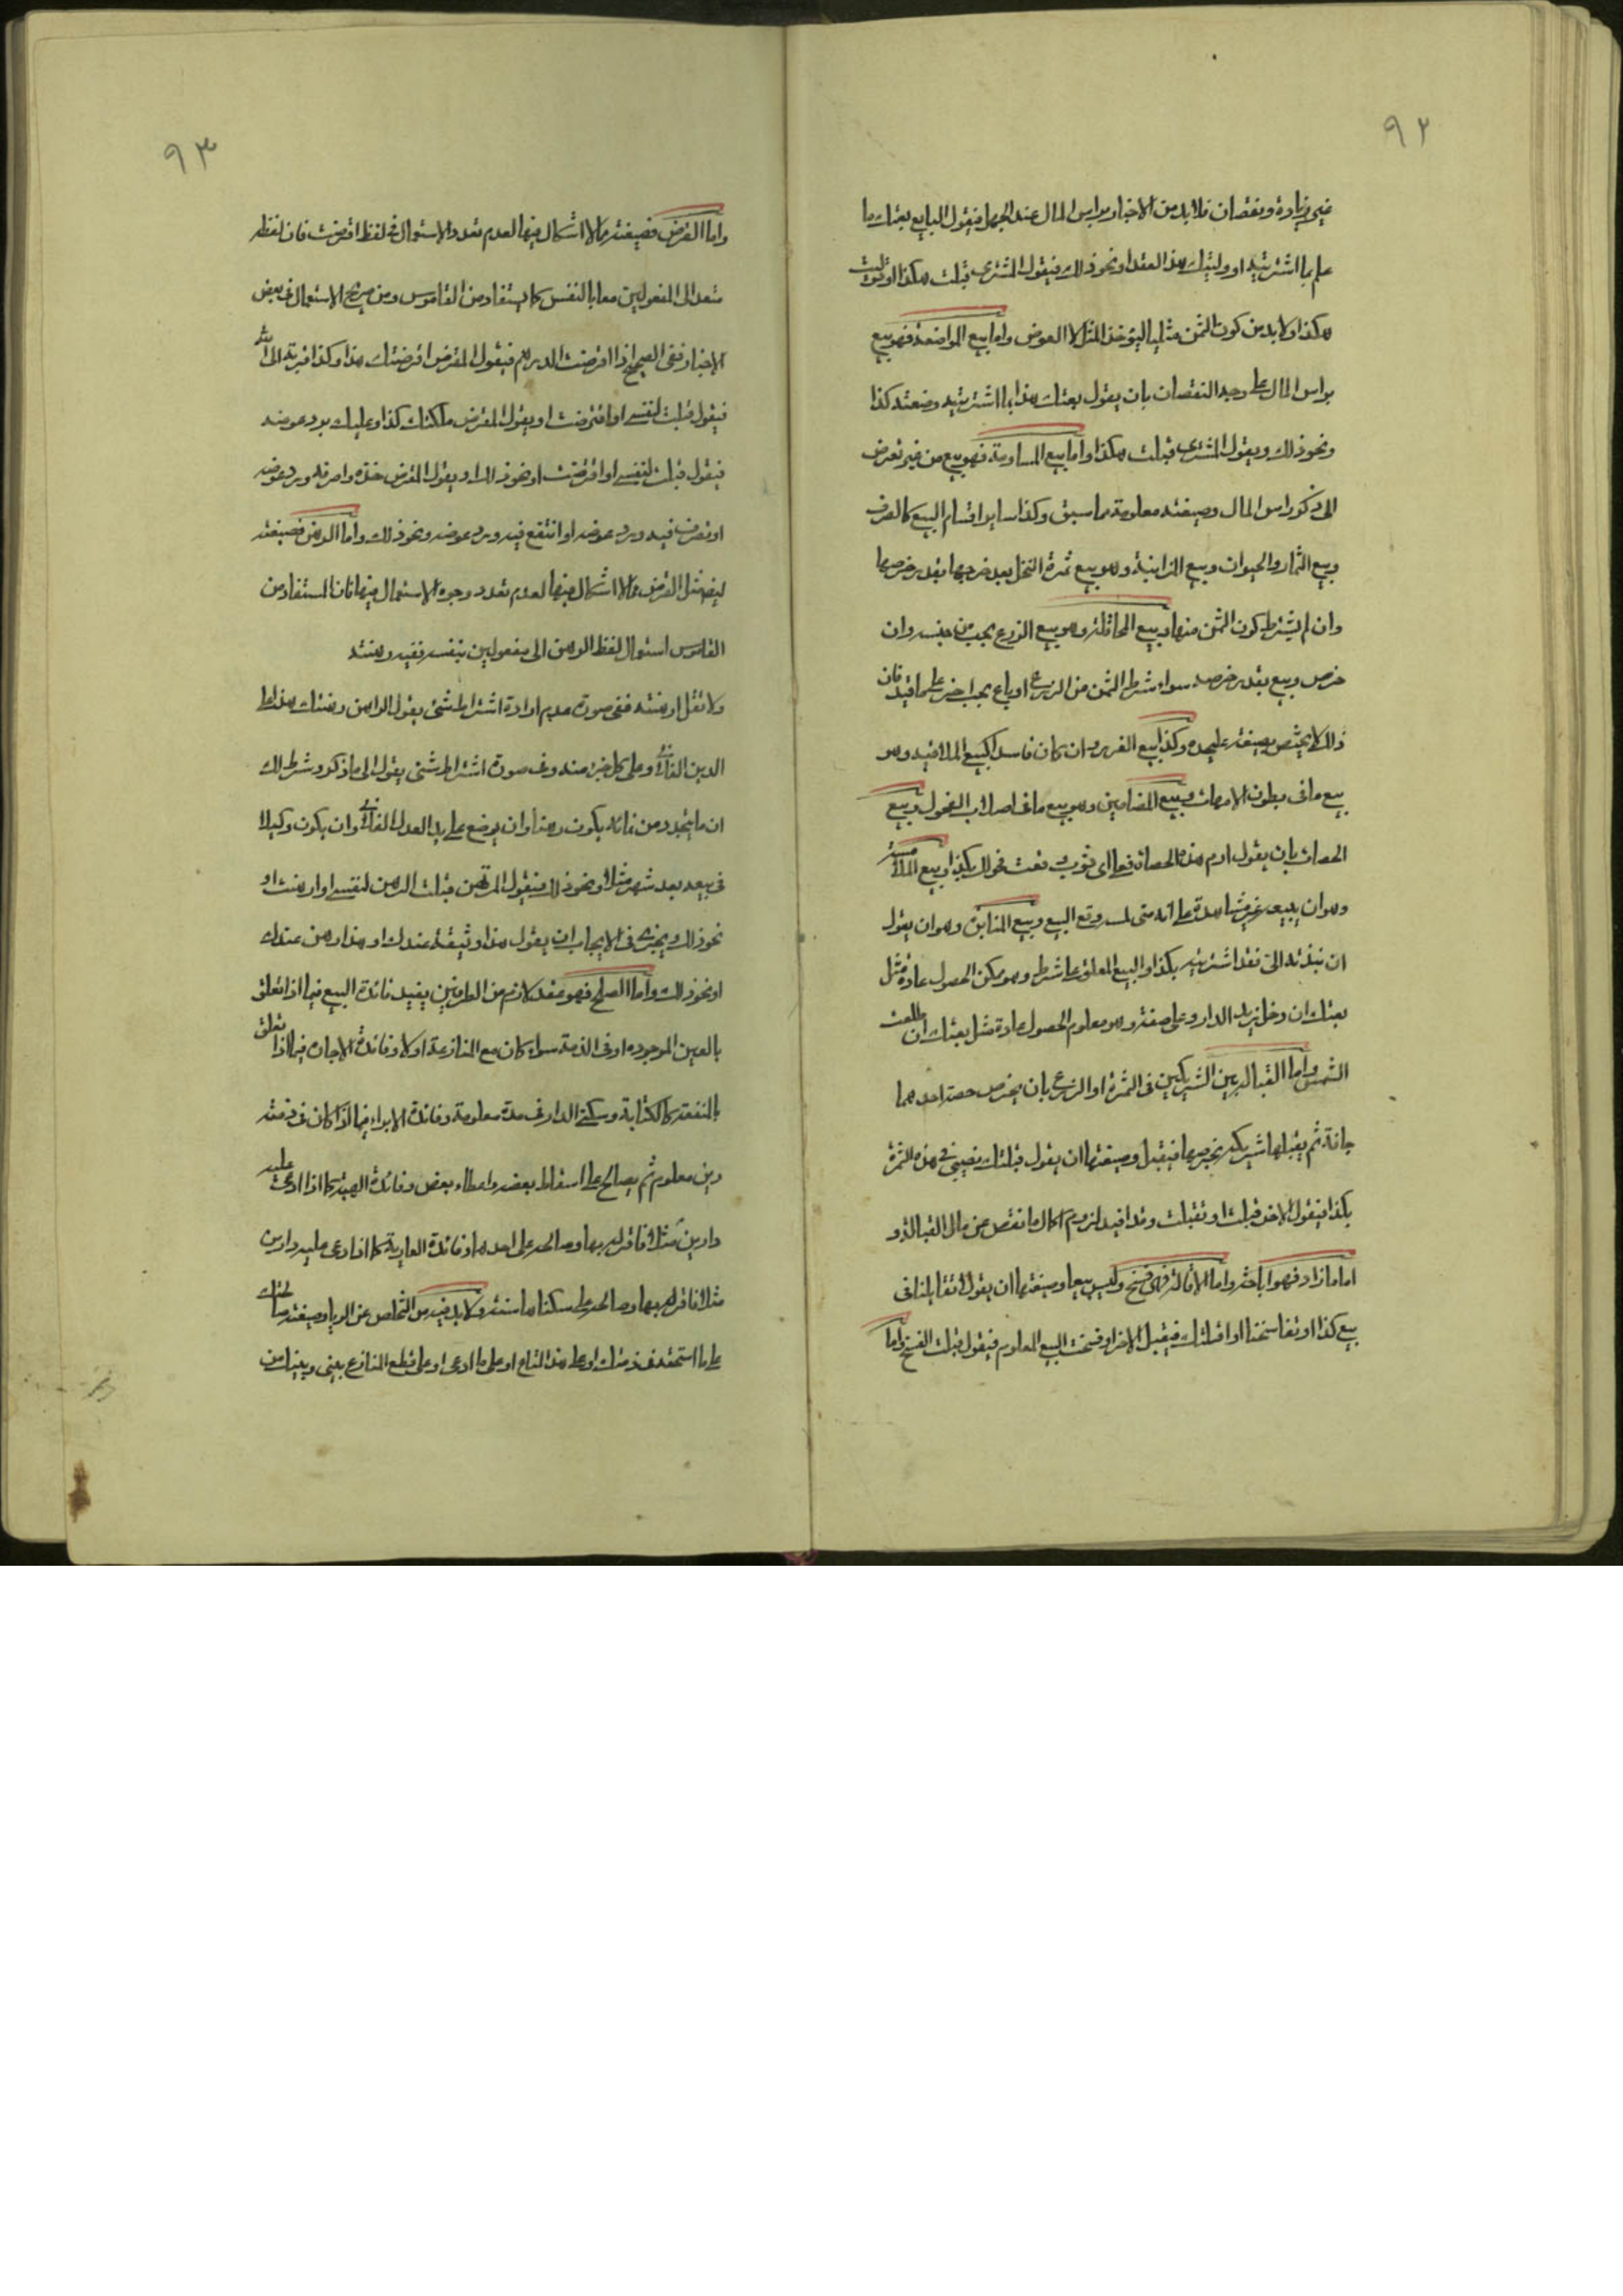 ٩٢
غير زيادة ونقصان فلا بد من الاخبار براس المال عند الجهل فيقول البايع بعتك ما
علم بما اشتريته او وليتك هذا العقد او نحو ذلك فيقول المشتري قبلت هكذا او توليت
هكذا ولا بد من كون الثمن مثليا ليؤخذ المثل لا العوض واما بيع المواضعة فهو بيع
براس المال على وجه النقصان بان يقول بعتك هذا بما اشتريته وضعته كذا
ونحو ذلك ويقول المشتري قبلت هكذا واما بيع المساومة فهو بيع من غير تعرض
الى ذكر راس المال وصيغته معلومة مما سبق وكذا ساير اقسام البيع كالصرف
وبيع الثمار والحيوان وبيع المزابنة وهو بيع ثمرة النخل بعد خرصها بقدر خرصها
وان لم يشترط كون الثمن منها وبيع المحاقلة وهو بيع الزرع بحب من جنسه وان
خرص وبيع بقدر خرصه سواء شرط الثمن من الزرع او باع بحب اخر على ما قيد فان
ذلك لا يختص بصيغة عليحده وكذا بيع الغرر وان كان فاسدا كبيع الملاقيح وهو
بيع ما في بطون الامهات وبيع المضامين وهو بيع ما في اصلاب الفحول وبيع
الحصاة بان يقول ارم هذه الحصاة فعلى اي ثوب وقعت فهو لك بكذا وبيع الملامسة
وهو ان يبيعه غير مشاهدة على انه متى لمسه وقع البيع وبيع المنابذة وهو ان يقول
ان نبذته الي فقد اشتريته بكذا والبيع المعلق على شرط وهو ممكن الحصول عادة مثل
بعتك ان دخل زيد الدار وعلى صفة وهو معلوم الحصول عادة مثل بعتك ان طلعت
الشمس واما القبالة بين الشريكين في الثمرة او الزرع بان يخرص حصة احدهما
ثم يقبلها شريكه بخرصها فيقبل وصيغتها ان يقول قبلتك نصيبي في هذه الثمرة
بكذا فيقول الاخر قبلت او تقبلت وفيه لزوم اكمال ما نقص عن مال القبالة و
اما ما زاد فهو اباحة واما الاقالة فهي فسخ وليس بيعا وصيغتها ان يقولا تقايلنا في
بيع كذا او تفاسخنا او اقلتك فيقبل الاخر او فسخت البيع المعلوم فيقول قبلت الفسخ واما
٩٣
واما القرض فصيغته مما لا اشكال فيها لعدم تعدد الاستعمال في لفظ اقرضت فان لفظه
متعد الى المفعولين معا بالنفس كما يستفاد من القاموس ومن صريح الاستعمال في بعض
الاخبار ففي الصحيح اذا اقرضت الدرهم فيقول المقرض اقرضتك هذا وكذا قربة الى الله
فيقول قبلت لنفسي او اقترضت او يقول المقرض ملكتك كذا وعليك برد عوضه
فيقول قبلت لنفسي او اقترضت او نحو ذلك او يقول المقرض خذه واصرفه ورد عوضه
او تصرف فيه ورد عوضه او انتفع فيه ورد عوضه ونحو ذلك واما الرهن فصيغته
ايضا مثل القرض مما لا اشكال فيها لعدم تعدد وجوه الاستعمال فيها فان المستفاد من
القاموس استعمال لفظ الرهن الى مفعولين بنفسه ففيه رهنته
ولا تقل ارهنته ففي صورة عدم ارادة اشتراط شيء يقول الراهن رهنتك هذا على
الدين الفلاني وعلى كل جزء منه وفي صورة اشتراط شيء يقول الى ما ذكر وشرط لك
ان ما يتجدد من نمائه يكون رهنا وان يوضع على يد العدل الفلاني وان يكون وكيلا
في بيعه بعد شهر مثلا ونحو ذلك فيقول المرتهن قبلت الرهن لنفسي او ارتهنت او
نحو ذلك ويجزي في الايجاب ان يقول هذا وثيقة عندك او هذا رهن عندك
او نحو ذلك واما الصلح فهو عقد لازم من الطرفين يفيد فائدة البيع فيما اذا تعلق
بالعين الموجوده او في الذمة سواء كان مع المنازعة او لا وفائدة الاجارة فيما اذا تعلق
بالمنفعة كالكتابة وسكنى الدار في مدة معلومة وفائدة الابراء فيما اذا كان في ذمته
دين معلوم ثم يصالح على اسقاط بعضه واعطاء بعض وفائدة الهبة كما اذا ادعى عليه
دارين مثلا فاقر له بها وصالحه على احدهما وفائدة العارية كما اذا ادعى عليه دارين
مثلا فاقر له بها وصالحه على سكناها سنة ولا بد فيه من التخلص عن الربا وصيغته صالحتك
على ما استحقه في ذمتك او على هذا المتاع او على ما ادعى او على قطع التنازع بيني وبينك من